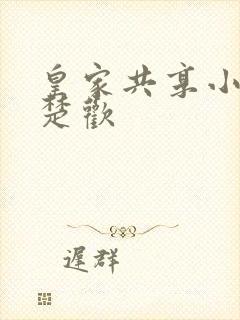 皇家共享小
楚歡
遲群